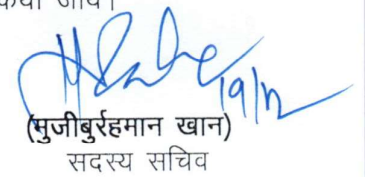 जावे।
19/12
(मुजीबुर्रहमान खान)
सदस्य सचिव